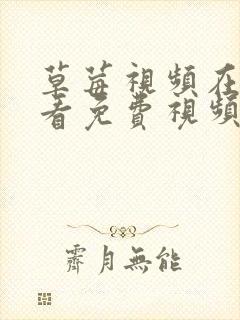 草莓視頻在
看免費視頻
霽月無能